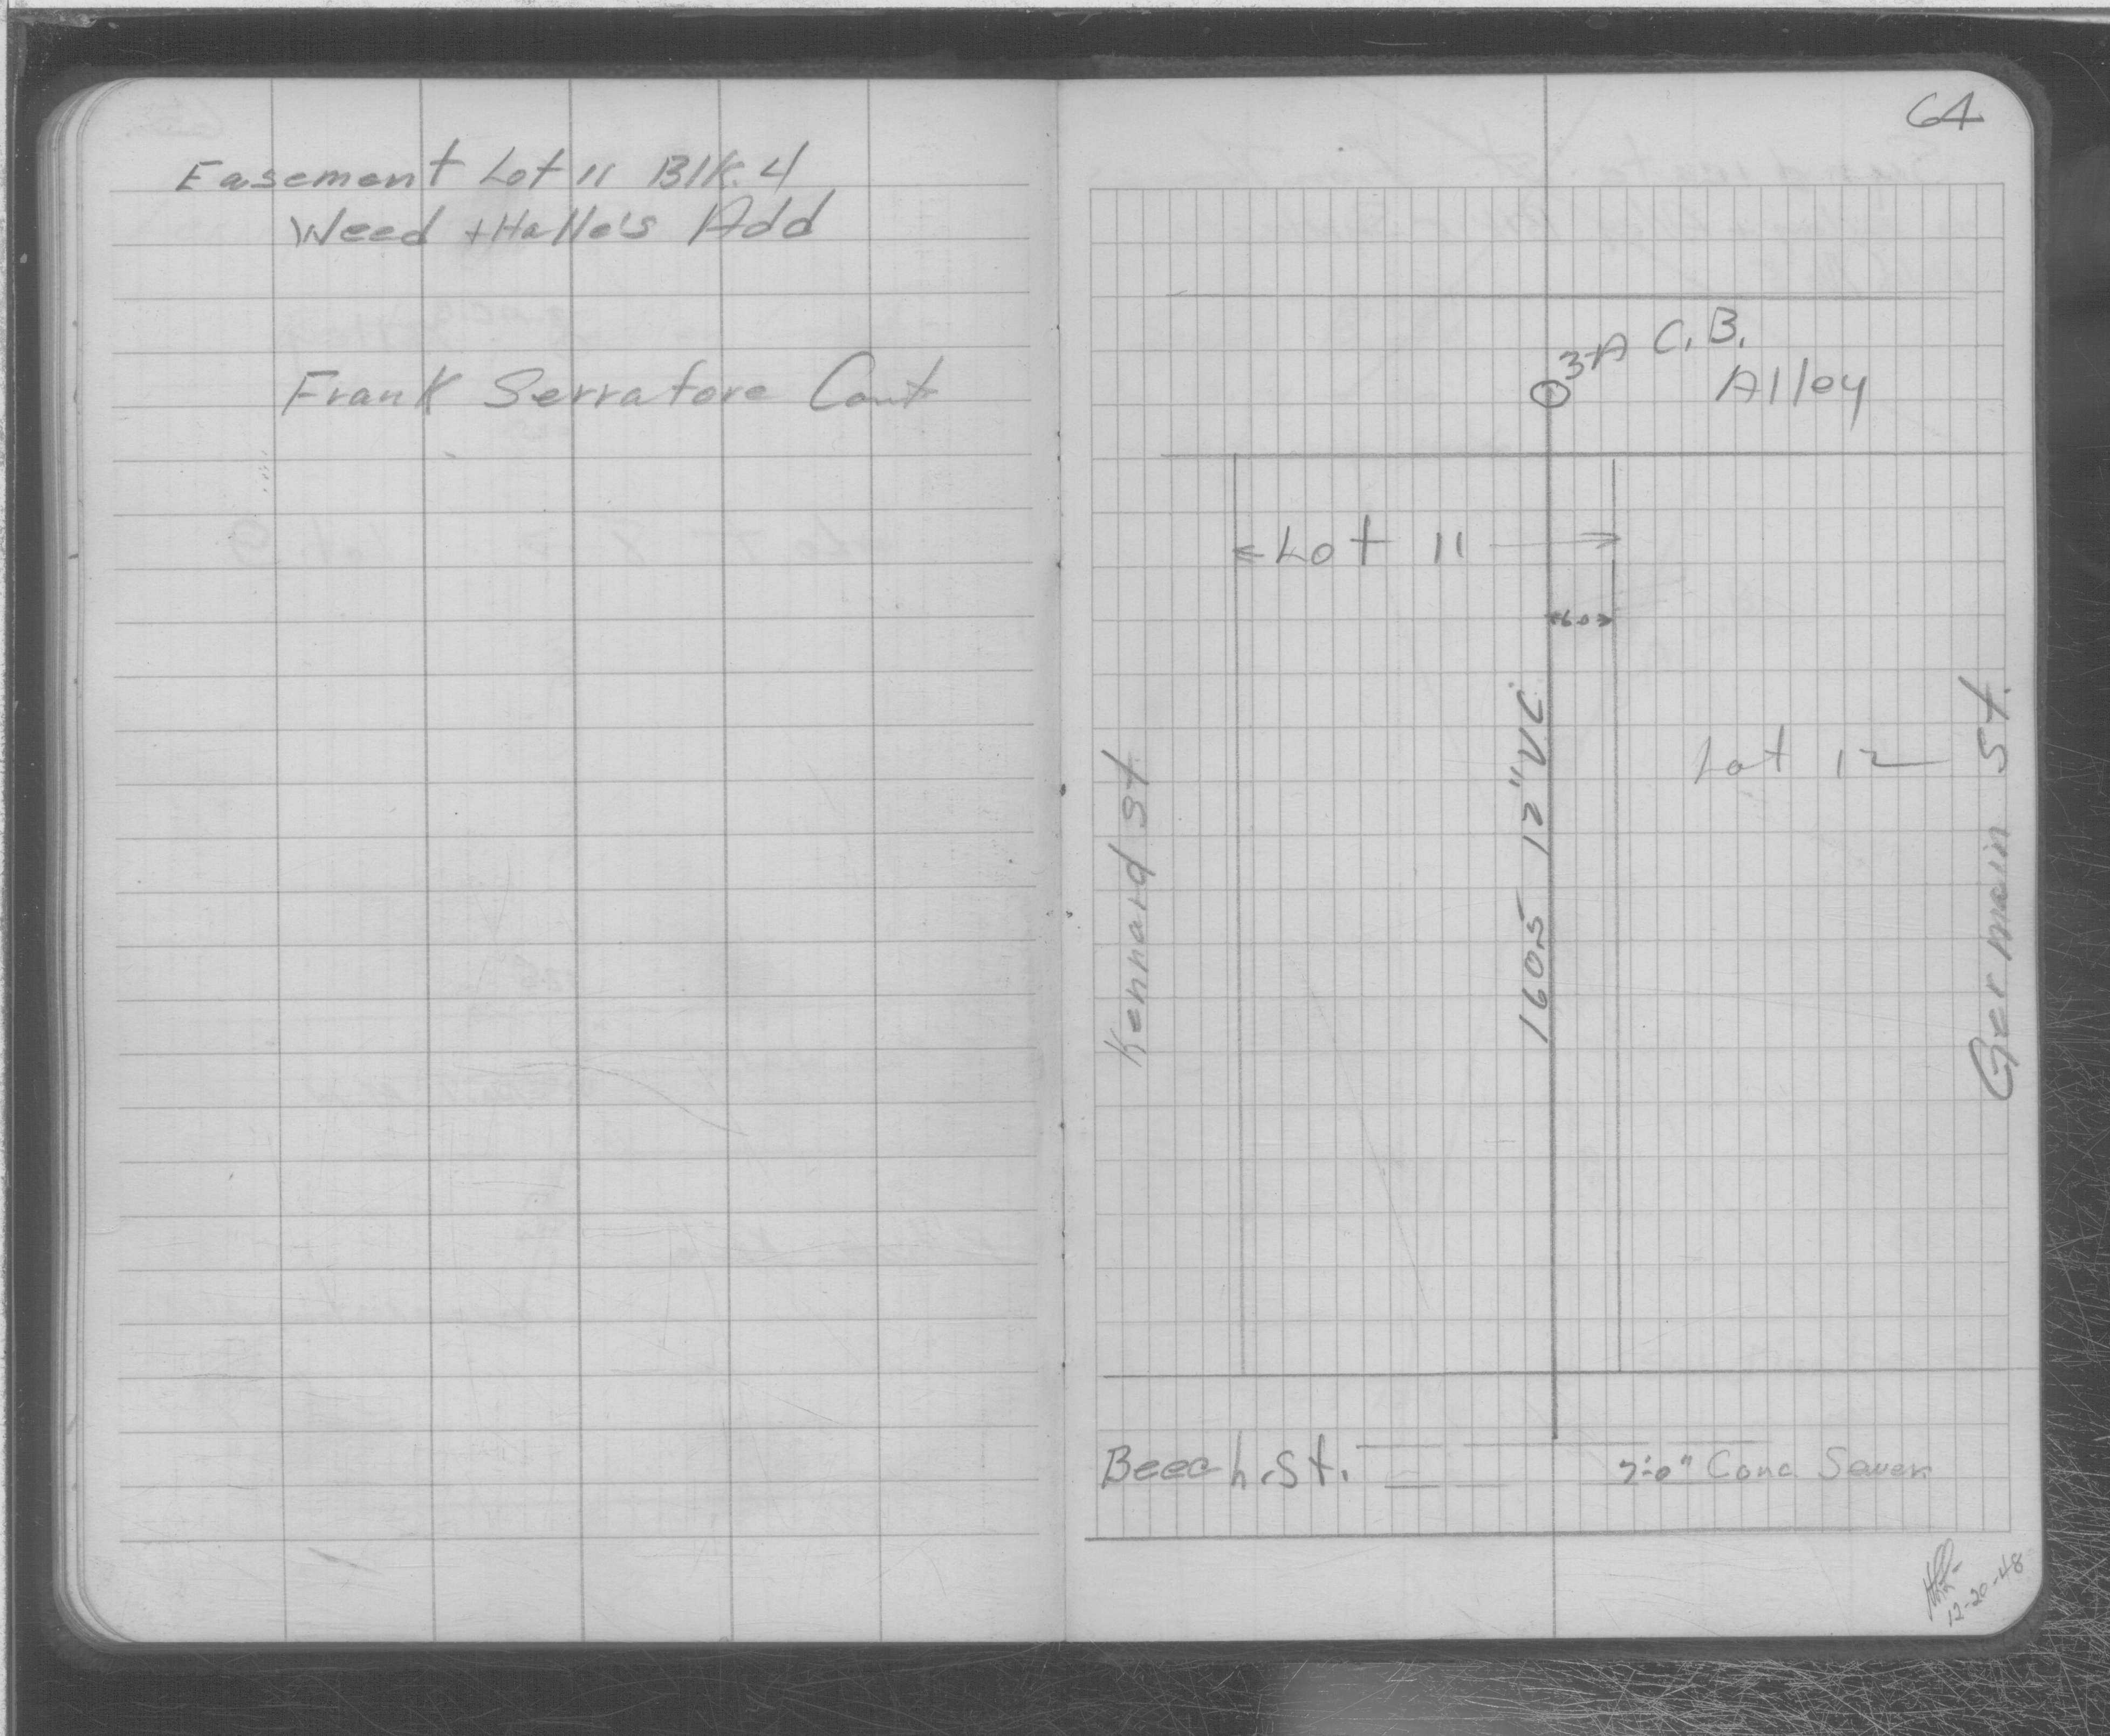 Easement Lot 11 Blk. 4
Weed + Halle's Add
Frank Serratore Cont
64
3-A C.B.
Alley
Lot 11
6.0
Kennard St
160.5 12" V.C.
Lot 12
Germain St.
Beech St.
7'-0" Conc. Sewer
12-20-48